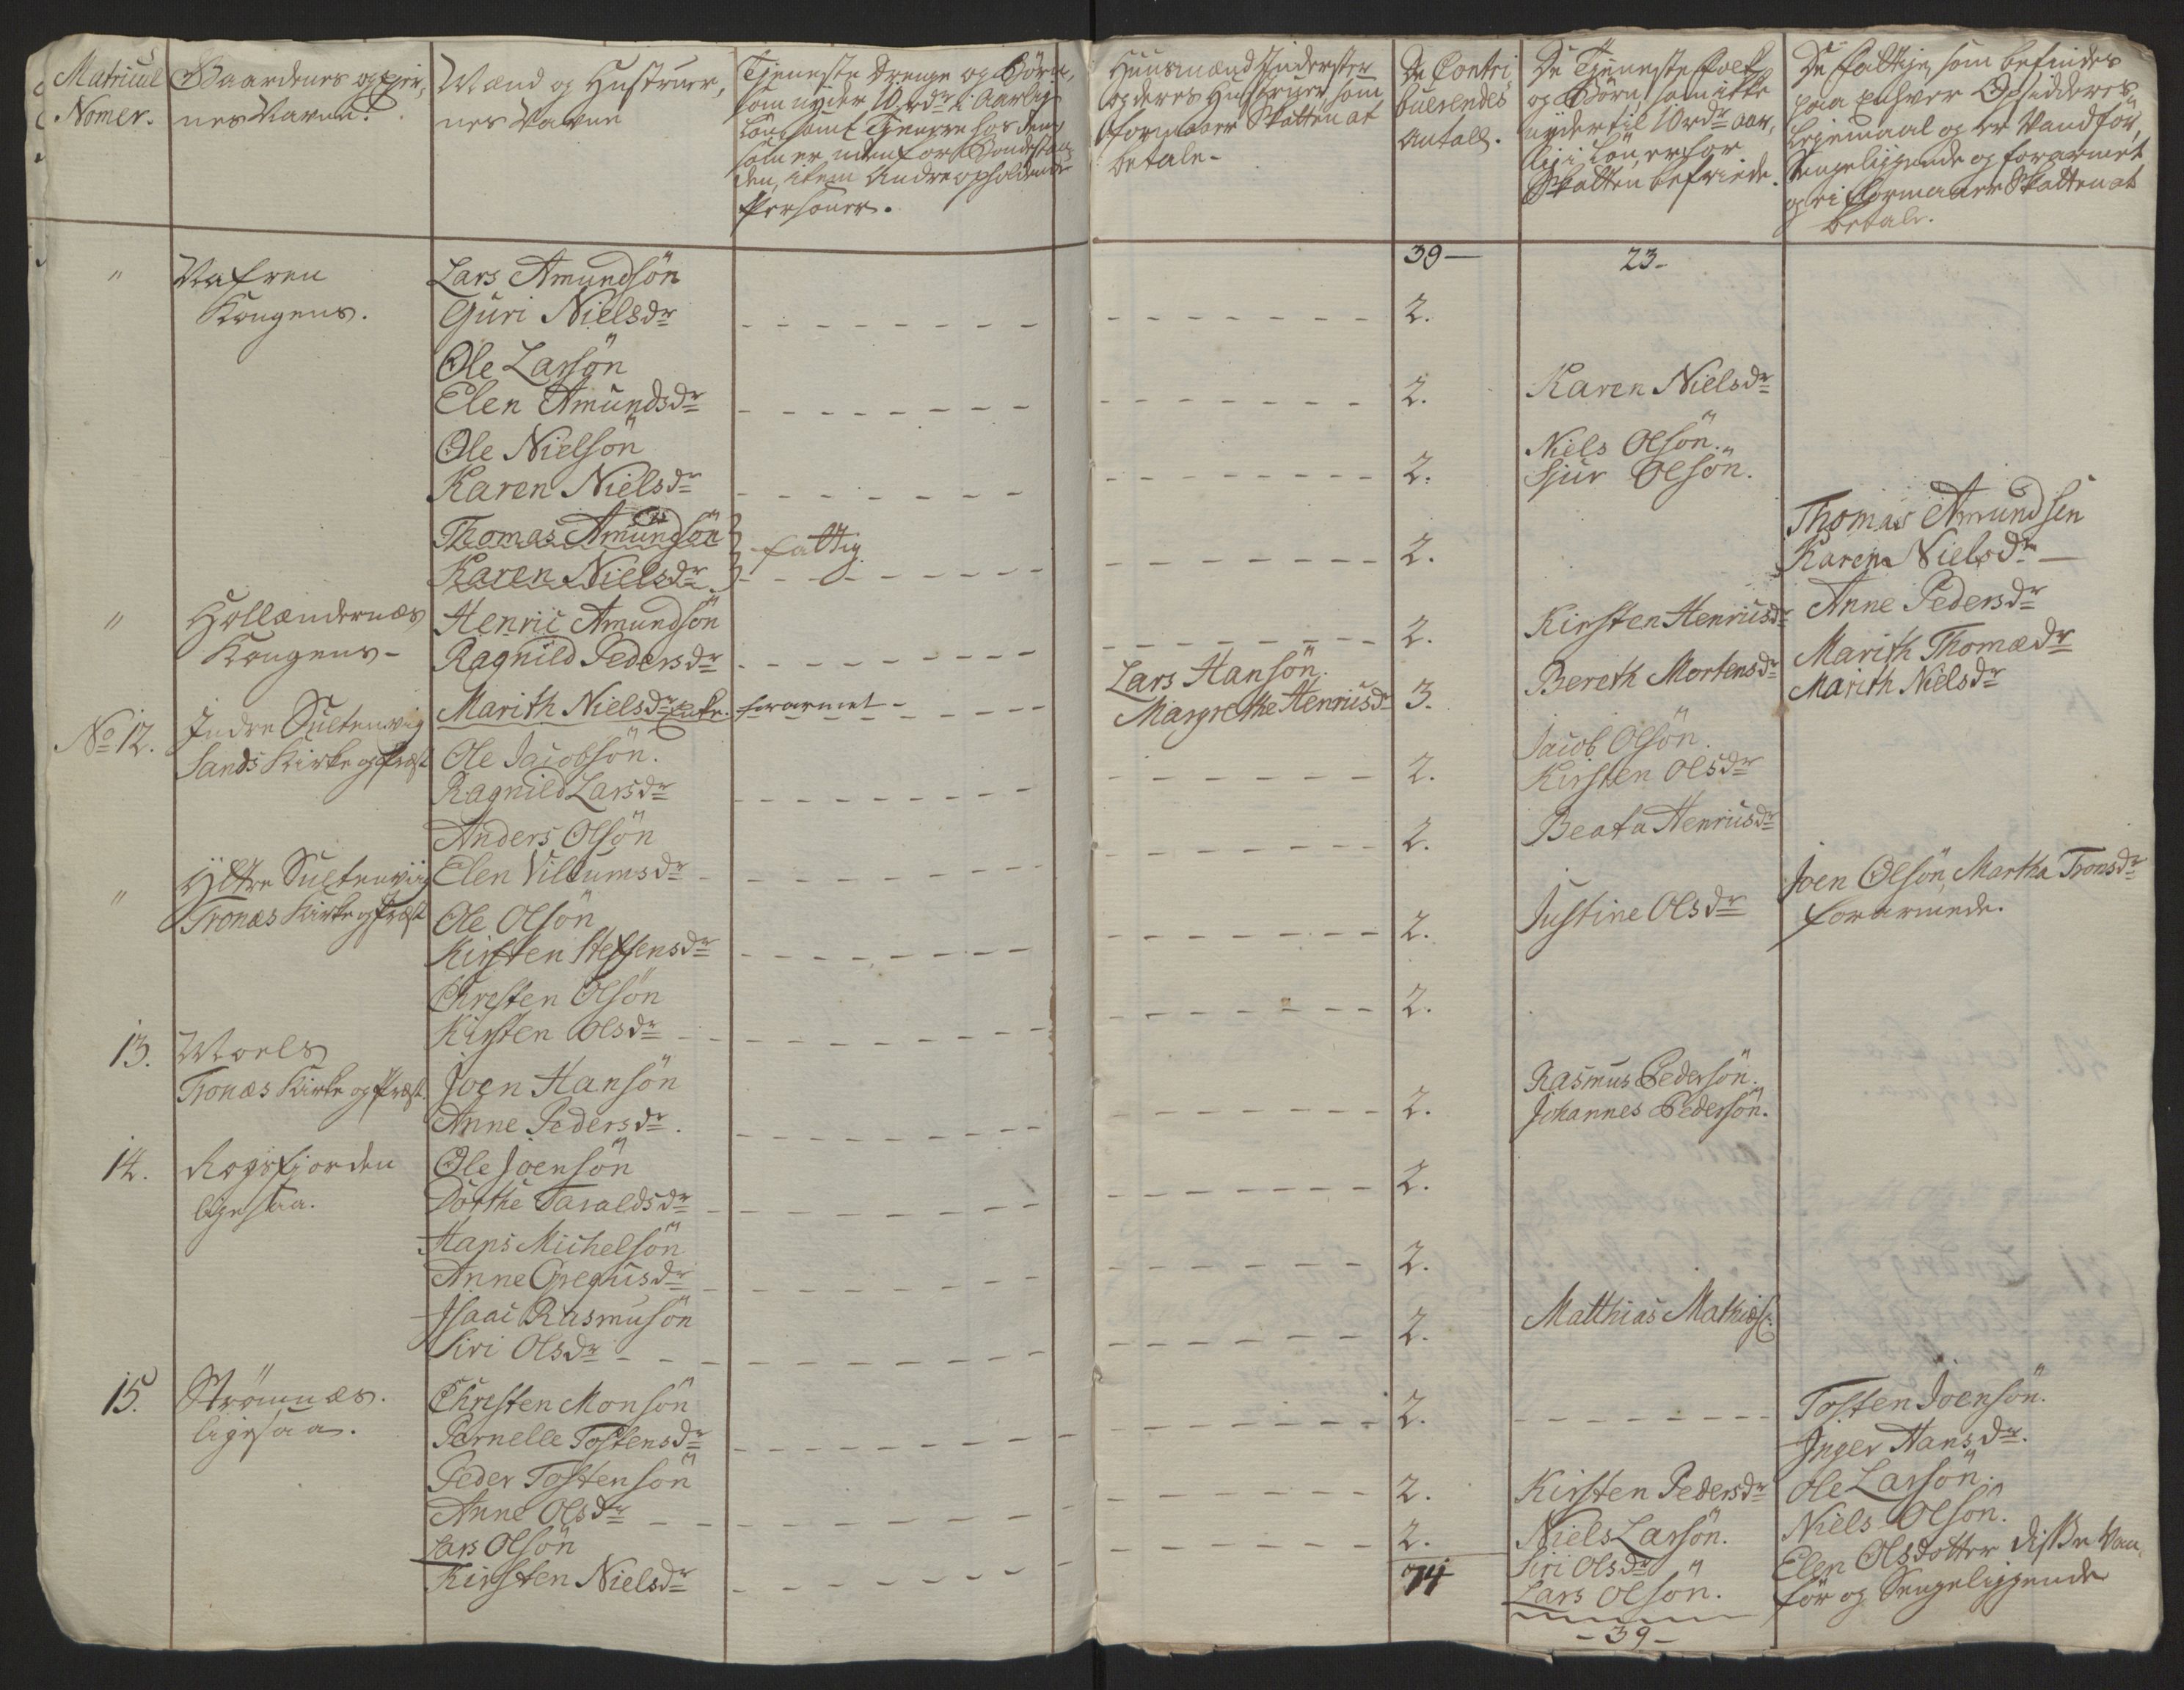 Matricul Nomer.
Gaardenes og Eier,
nes Navne.
Mænd og Hustruer,
nes Navne
Tjeneste Drenge og Börn,
som nyder 10 rdr. i Aarlig
Lön, samt Tjenere hos dem
som er uden for Bondestan,
den, item Andre opholdende
Personer.
Huusmænd Inderster
og deres Hustruer som
formaaer Skatten at
betale.
De Contri
buerendes
Antall.
De Tjeneste folk
og Börn som ikke
nyder til 10 rdr. aar,
lig i Lön, er for
Skatten befriede.
De fattige, som befindes
paa enhver Opsidderes
Leyemaal og er Vandför,
Sengeliggende og forarmet
og ei formaaer Skatten at
betale.
39 —
23 -
" Nafren
Kongens.
Lars Amundsön
Guri Nielsdr
2.
Ole Larsön
Elen Amundsdr
2.
Karen Nielsdr
Ole Nielsön
Karen Nielsdr
2.
Niels Olsön.
Sjur Olsön.
Thomas Amundsön
Karen Nielsdr
fattig
2.
Thomas Amundsen
Karen Nielsdr
" Hollændernæs
Kongens -
Henric Amundsön
Ragnild Pedersdr
2.
Kirsten Henricsdr
Anne Pedersdr
Marith Nielsdr Enke. forarmet -
Lars Hansön.
Margrethe Henricsdr
3.
Bereth Mortensdr
Marith Thomædr
Marith Nielsdr
No 12. Indre Sultenvig
Sands Kirke og Præst
Ole Jacobsön.
Ragnild Larsdr
2.
Jacob Olsön.
Kirsten Olsdr
Anders Olsön
Elen Villumsdr
2.
Beata Henricsdr
" Yttre Sultenviig
Tronæs Kirke og Præst
Ole Olsön
Kirsten Steffensdr
2.
Justine Olsdr
Joen Olsön, Martha Tronsdr
forarmede.
Christen Olsön
Kirsten Olsdr
2.
13. Moels
Tronæs Kirke og Præst.
Joen Hansön
Anne Pedersdr.
2.
Rasmus Pedersön.
Johannes Pedersön.
14. Rogsfjorden
ligesaa.
Ole Joensön
Dorthe Taraldsdr
2.
Hans Michelsön
Anne Gregusdr
2.
Isaac Rasmusön
Siri Olsdr
2.
Matthias Mathiæs.
15. Strömnæs.
ligesaa.
Christen Monsön
Pernelle Tostensdr
2.
Tosten Joensön.
Inger Hansdr.
Peder Tostensön
Anne Olsdr
2.
Kirsten Pedersdr
Ole Larsön.
Lars Olsön
Kirsten Nielsdr
2.
Niels Larsön.
Niels Olsön.
74
Siri Olsdr
Lars Olsön.
Elen Olsdotter disse Van,
för og Sengeliggende
- 39 -